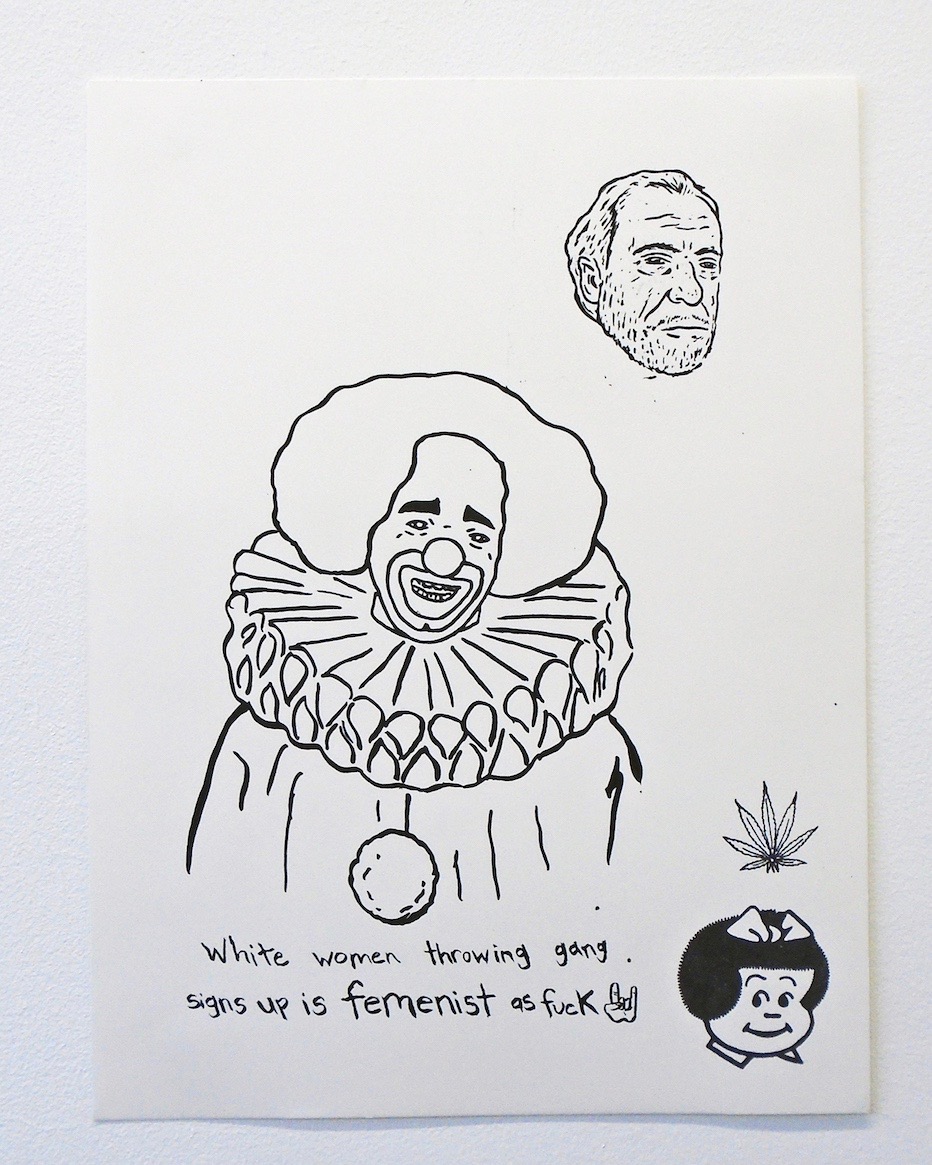 White women throwing gang.
signs up is femenist as fucK